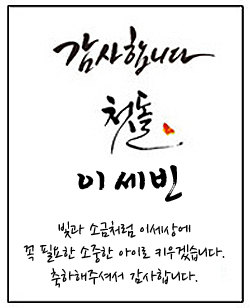 감사합니다
첫돌
이세빈
빛과 소금처럼 이세상에
꼭 필요한 소중한 아이로 키우겠습니다.
축하해주셔서 감사합니다.